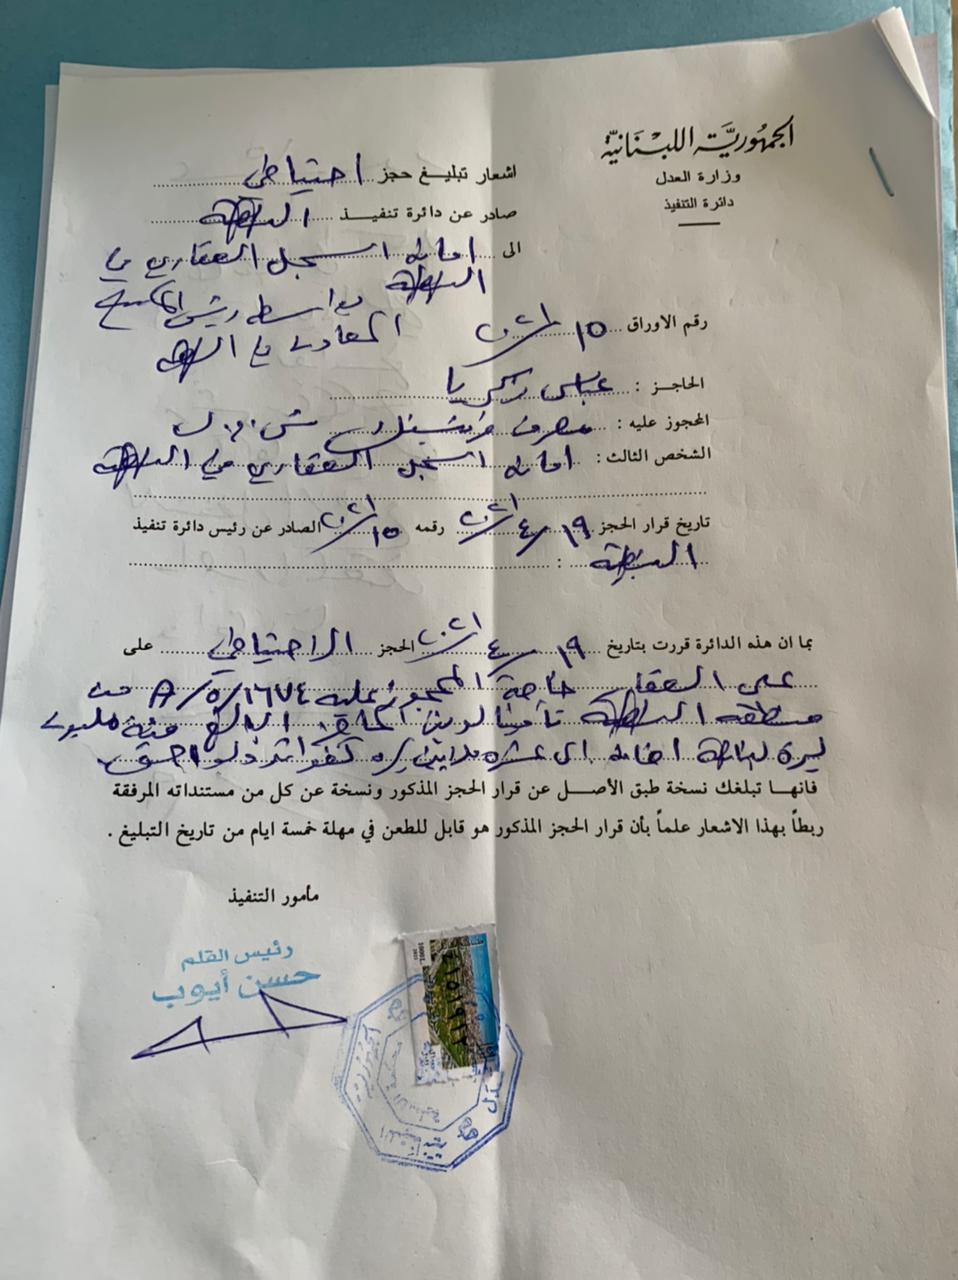 الجمهورية اللبنانية
وزارة العدل
دائرة التنفيذ
اشعار تبليغ حجز احتياطي
صادر عن دائرة تنفيذ النبطية
الى امانة السجل العقاري في
النبطية بواسطة رئيس المكتب
المعاون في النبطية
رقم الاوراق ١٥/٢٠٢١
الحاجز : عباس زكريا
المحجوز عليه : مصرف ش.م.ل
الشخص الثالث : امانة السجل العقاري في النبطية
تاريخ قرار الحجز ١٩/٤/٢٠٢١ رقمه ١٥/٢٠٢١ الصادر عن رئيس دائرة تنفيذ
النبطية :
بما ان هذه الدائرة قررت بتاريخ ١٩/٤/٢٠٢١ الحجز الاحتياطي على
على العقار خاصة المحجوز عليه ١٦٧٤/٥/A من
منطقة النبطية تأمينا لدين الحاجز البالغ مئة مليون
ليرة لبنانية اضافة الى عشرة ملايين ليرة
فانها تبلغك نسخة طبق الأصل عن قرار الحجز المذكور ونسخة عن كل من مستنداته المرفقة
ربطاً بهذا الاشعار علماً بأن قرار الحجز المذكور هو قابل للطعن في مهلة خمسة ايام من تاريخ التبليغ .
مأمور التنفيذ
رئيس القلم
حسن أيوب